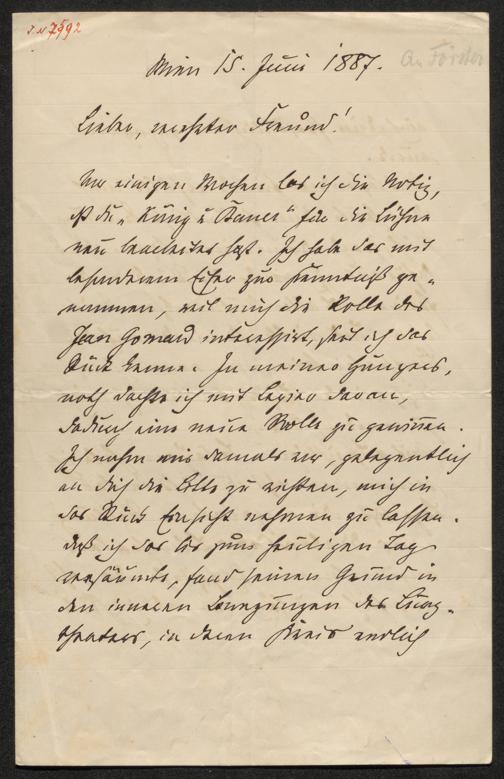 J. N 7592
An Förster
Wien 15. Juni 1887.
Lieber, verehrter Freund!
Vor einigen Wochen las ich die Notiz,
daß du „König u Bauer“ für die Bühne
neu bearbeitet hast. Ich habe das mit
besonderem Eifer zur Kenntniß ge-
nommen, weil mich die Rolle des
Jean Gomard interessirt, seit ich das
Stück kenne. In meiner Hungers-
noth dachte ich mit Begier daran,
dadurch eine neue Rolle zu gewinnen.
Ich nahm mir damals vor, gelegentlich
an dich die Bitte zu richten, mich in
das Stück Einsicht nehmen zu lassen.
daß ich das bis zum heutigen Tag
versäumte, fand seinen Grund in
den inneren Bewegungen des Burg-
theaters, in deren Kreis endlich